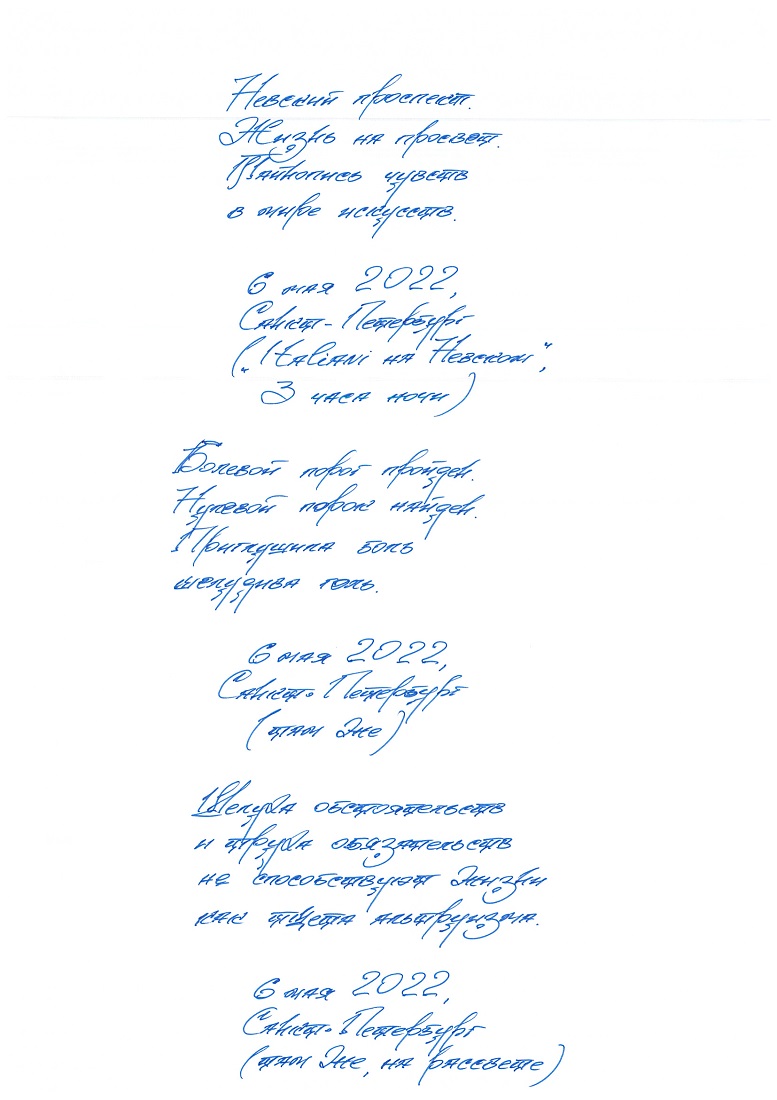 Невский проспект.
Жизнь на просвет.
Тайнопись чувств
в мире искусств.
6 мая 2022,
Санкт-Петербург
(„Italiani на Невском“,
3 часа ночи)
Болевой порог пройден.
Нулевой порок найден.
Приглушила боль
шелудива голь.
6 мая 2022,
Санкт-Петербург
(там же)
Шелуха обстоятельств
и труха обязательств
не способствуют жизни
как тщета альтруизма.
6 мая 2022,
Санкт-Петербург
(там же, на рассвете)